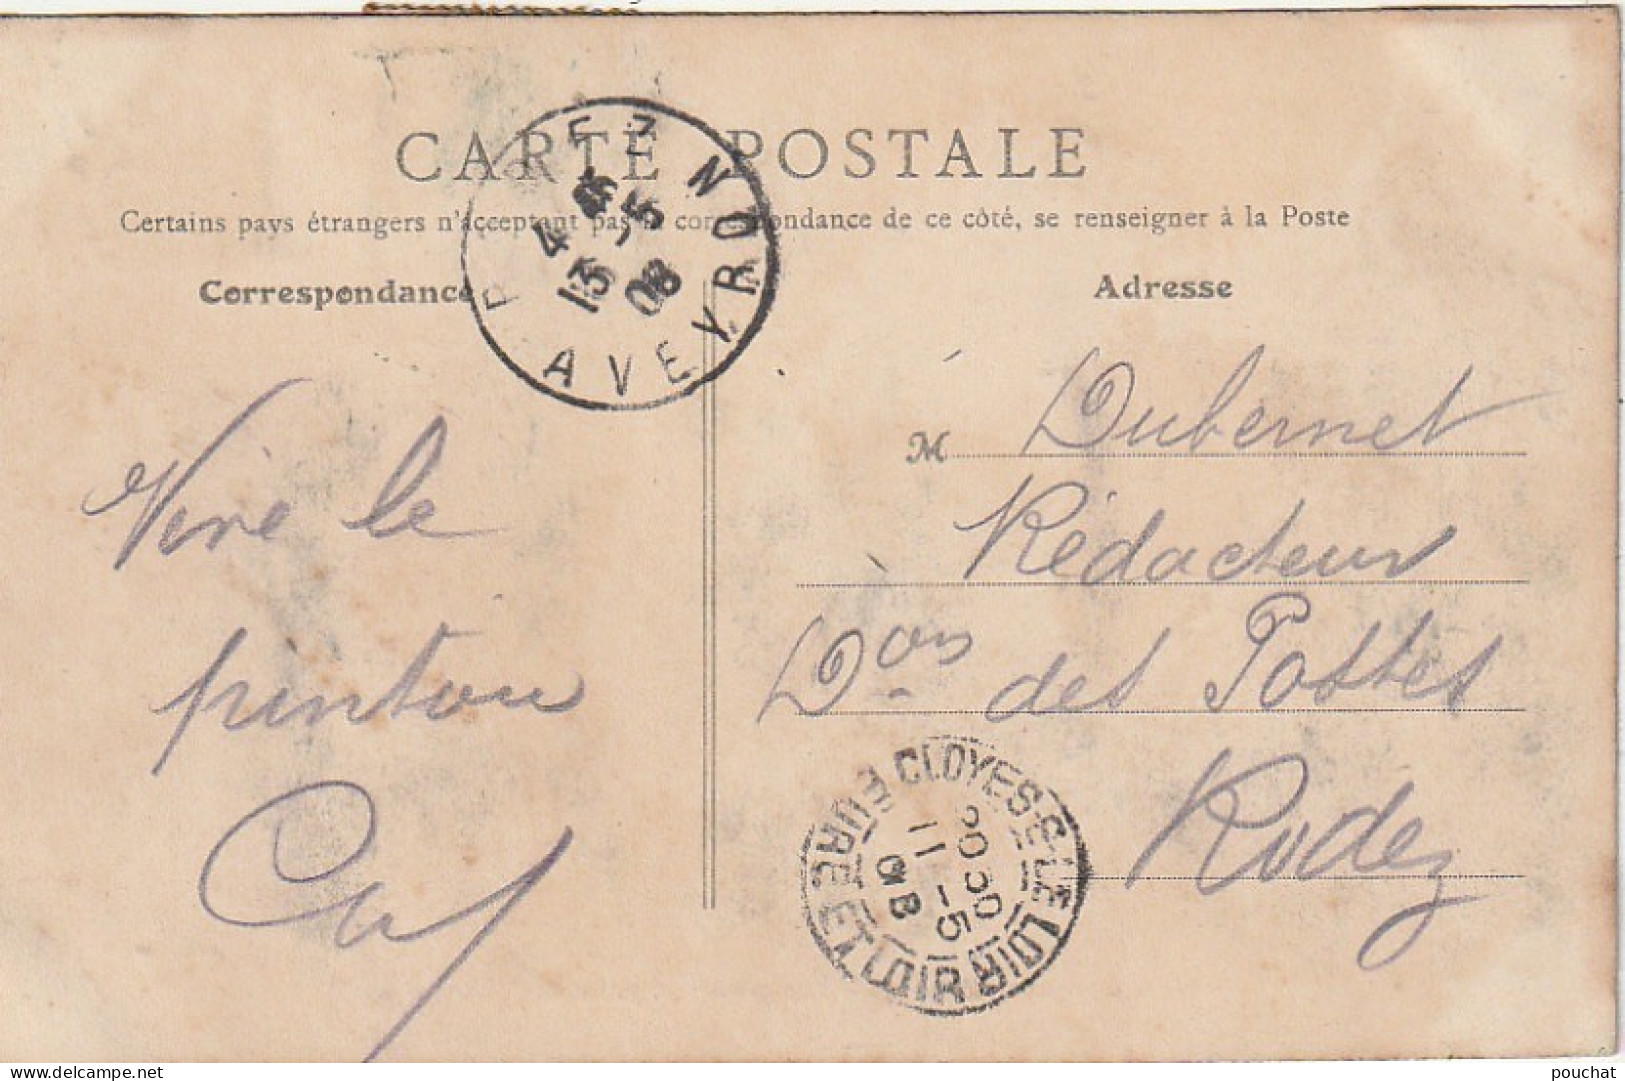 CARTE POSTALE
Certains pays étrangers n'acceptent pas la correspondance de ce côté, se renseigner à la Poste
Correspondance
Adresse
AVEYRON
4 15
13 5
08
Vive le
pinton
M Dubernet
Rédacteur
Don des Postes
Rodez
CLOYES-S-LE LOIR
EURE ET LOIR
20 30
11 -5
08
pouchat